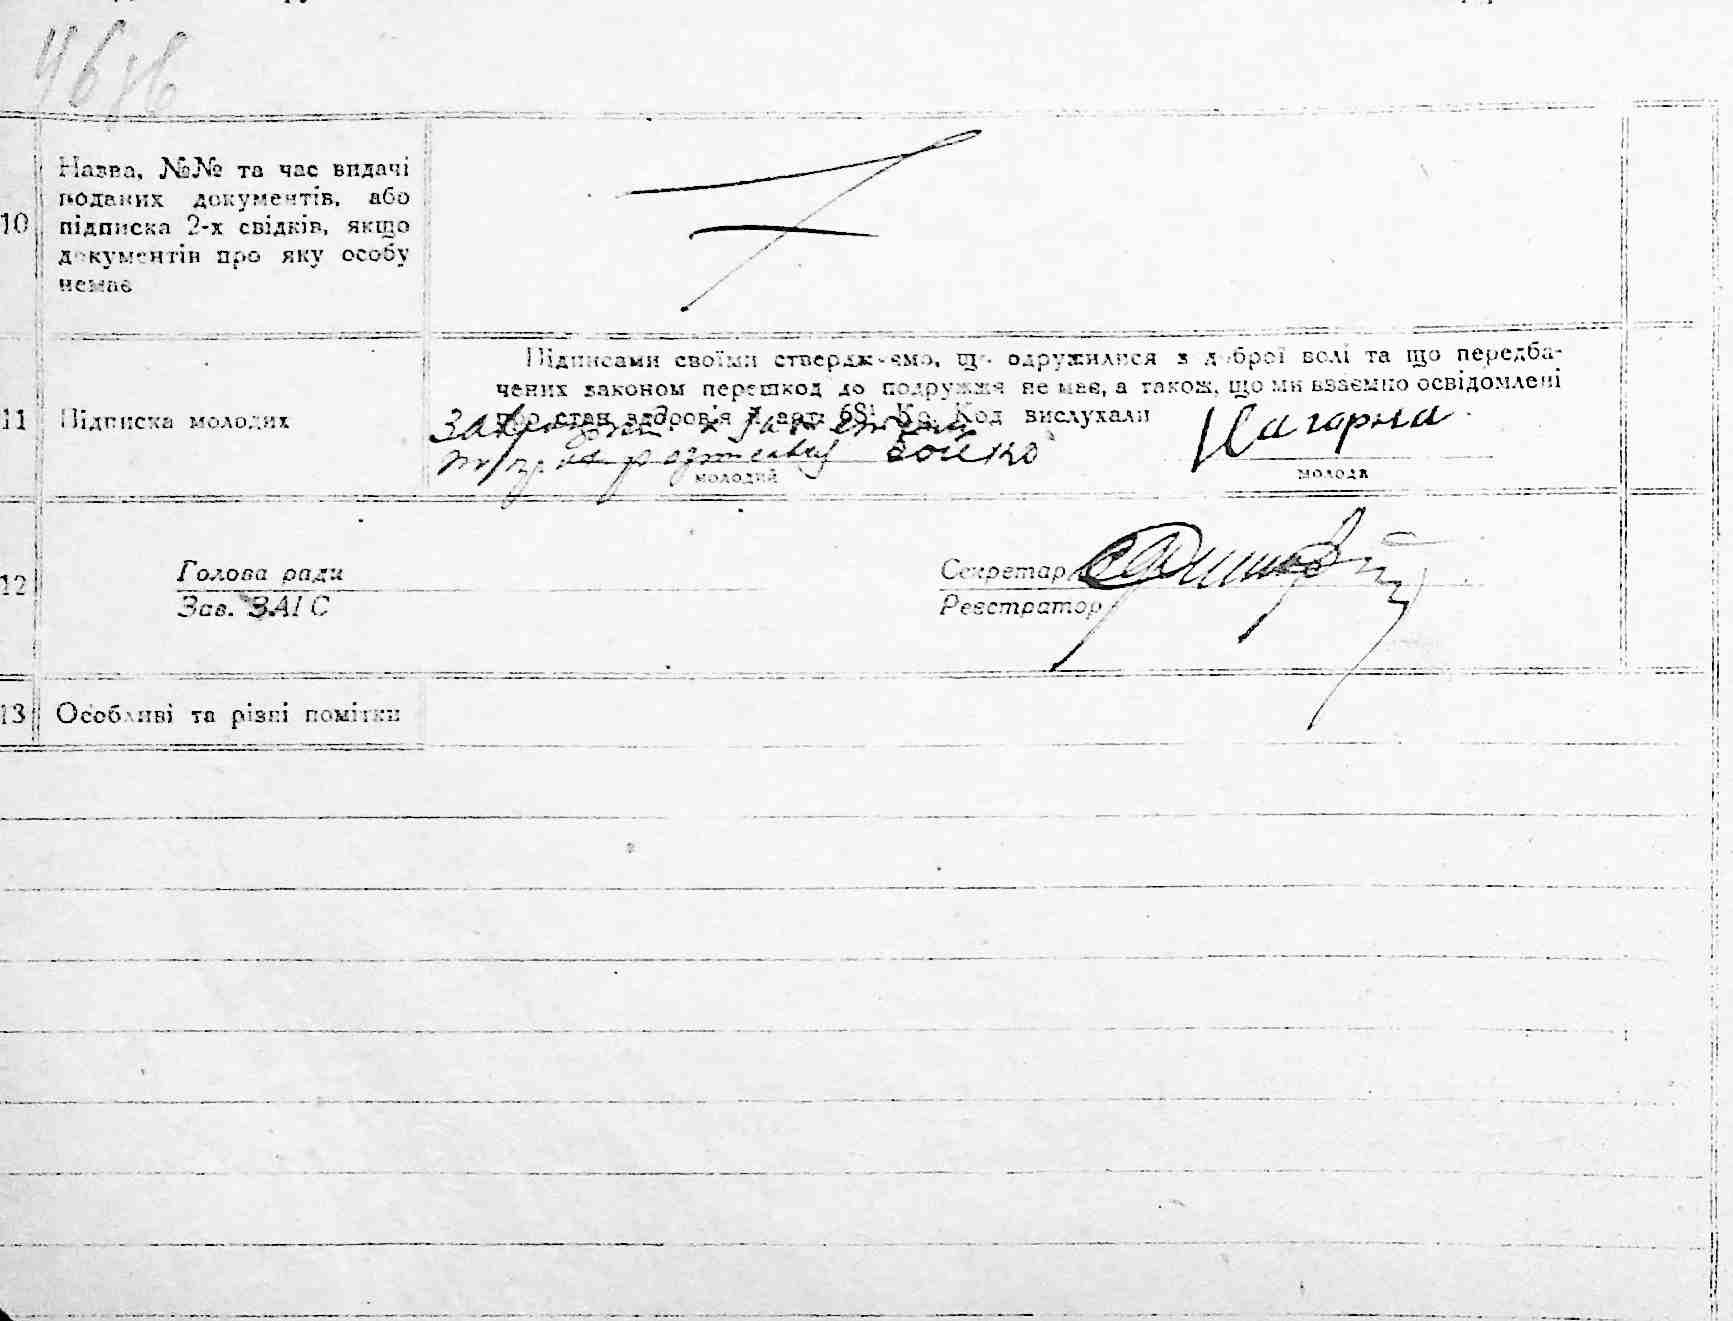 10
Назва, №№ та час видачі
поданих документів, або
підписка 2-х свідків, якщо
документів про яку особу
немає
11
Підписка молодих
Підписами своїми стверджуємо, що одружилися з доброї волі та що передба-
чених законом перешкод до подружжя не має, а також, що ми взаємно освідомлені
про стан здоров'я і арт. 68 Кр. Код вислухали
Бойко
Нагорна
молодий
молода
12
Голова ради
Зав. ЗАГС
Секретар
Реєстратор
13
Особливі та різні помітки